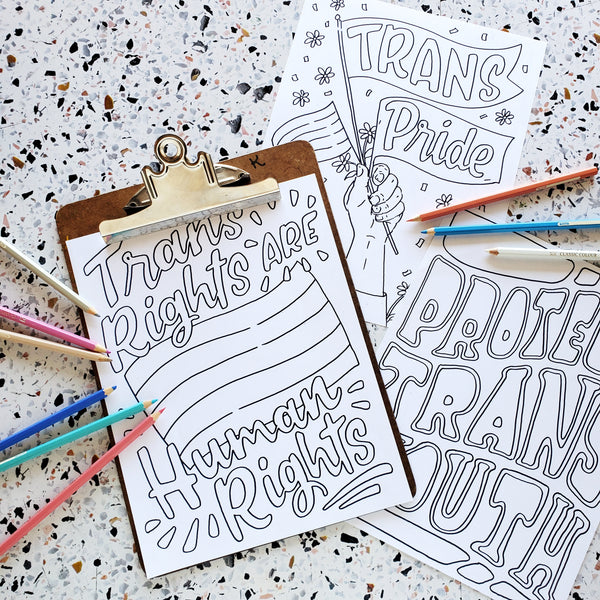 TRANS
Pride
Trans
Rights ARE
Human
Rights
PROTEC
TRANS
OUTH
K
CLASSIC COLOUR